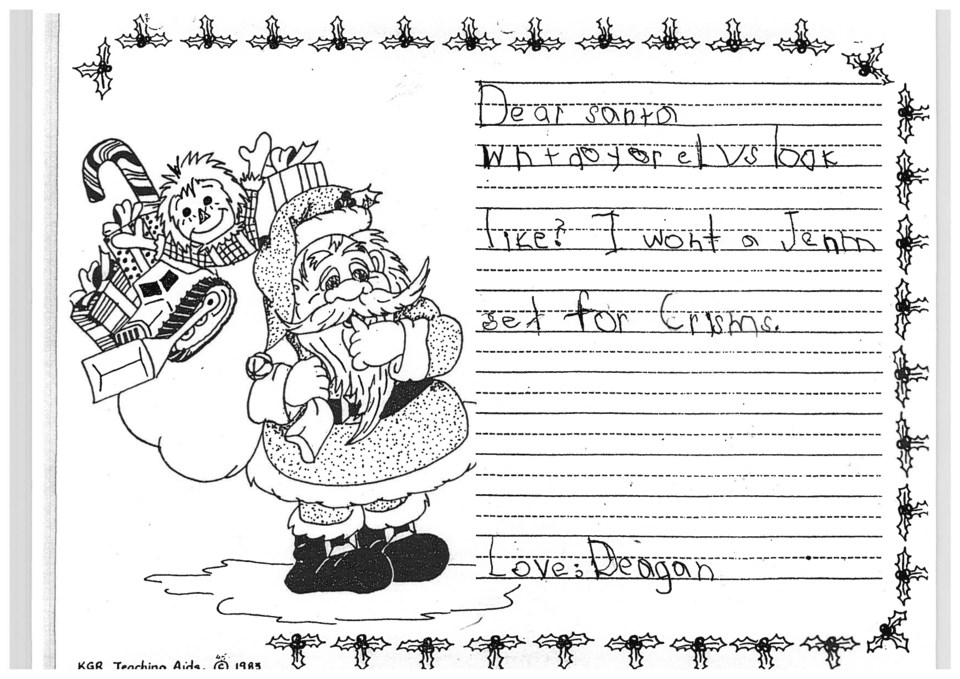 Dear santa
Wht do yor elvs look
like? I wont a Jenm
set for Crisms.
Love; Deagan
KGR Teaching Aids. © 1985